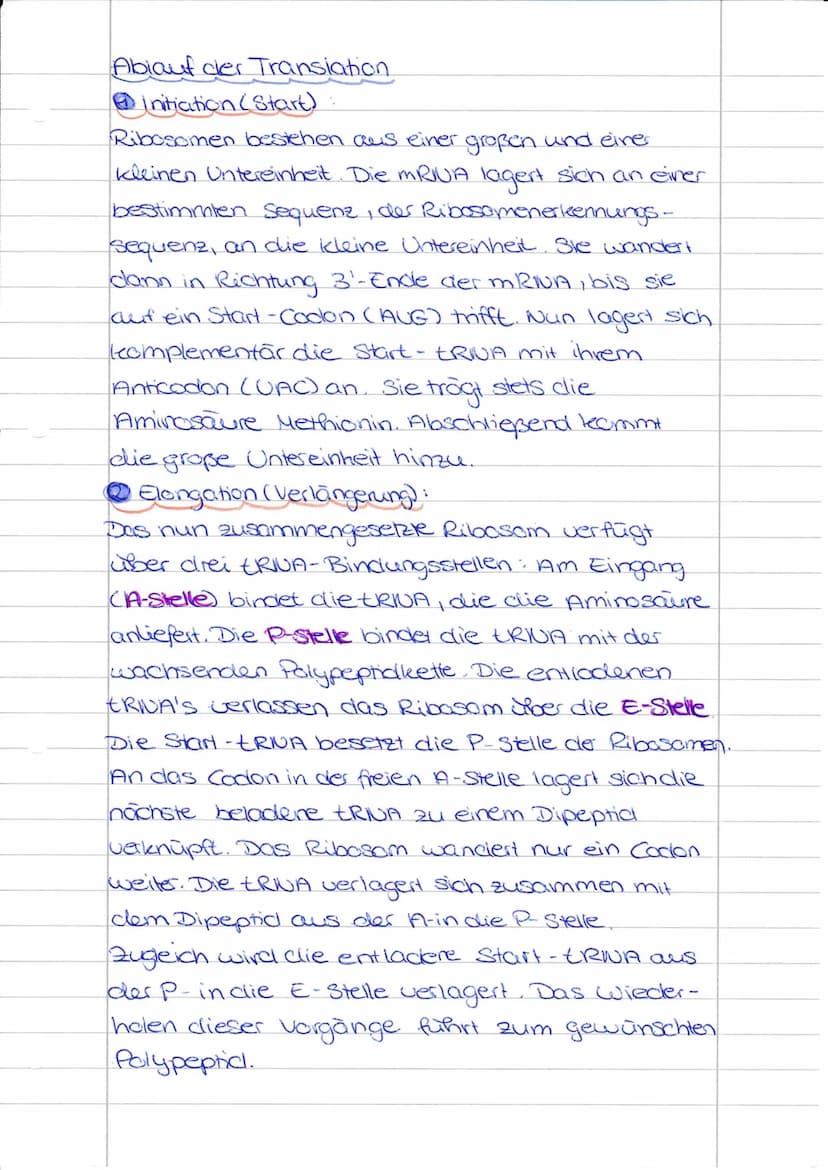 Ablauf der Translation
1 Initiation (Start) :
Ribosomen bestehen aus einer großen und einer
kleinen Untereinheit. Die mRNA lagert sich an einer
bestimmten Sequenz, der Ribosomenerkennungs-
sequenz, an die kleine Untereinheit. Sie wandert
dann in Richtung 3'-Ende der mRNA, bis sie
auf ein Start-Codon (AUG) trifft. Nun lagert sich
komplementär die Start-tRNA mit ihrem
Anticodon (UAC) an. Sie trägt stets die
Aminosäure Methionin. Abschließend kommt
die große Untereinheit hinzu.
2 Elongation (Verlängerung):
Das nun zusammengesetzte Ribosom verfügt
über drei tRNA-Bindungsstellen: Am Eingang
(A-Stelle) bindet die tRNA, die die Aminosäure
anliefert. Die P-Stelle bindet die tRNA mit der
wachsenden Polypeptidkette. Die entladenen
tRNA's verlassen das Ribosom über die E-Stelle
Die Start-tRNA besetzt die P-Stelle der Ribosomen.
An das Codon in der freien A-Stelle lagert sich die
nächste beladene tRNA zu einem Dipeptid
verknüpft. Das Ribosom wandert nur ein Codon
weiter. Die tRNA verlagert sich zusammen mit
dem Dipeptid aus der A-in die P-Stelle.
Zugleich wird die entladene Start-tRNA aus
der P-in die E-Stelle verlagert. Das Wieder-
holen dieser Vorgänge führt zum gewünschten
Polypeptid.